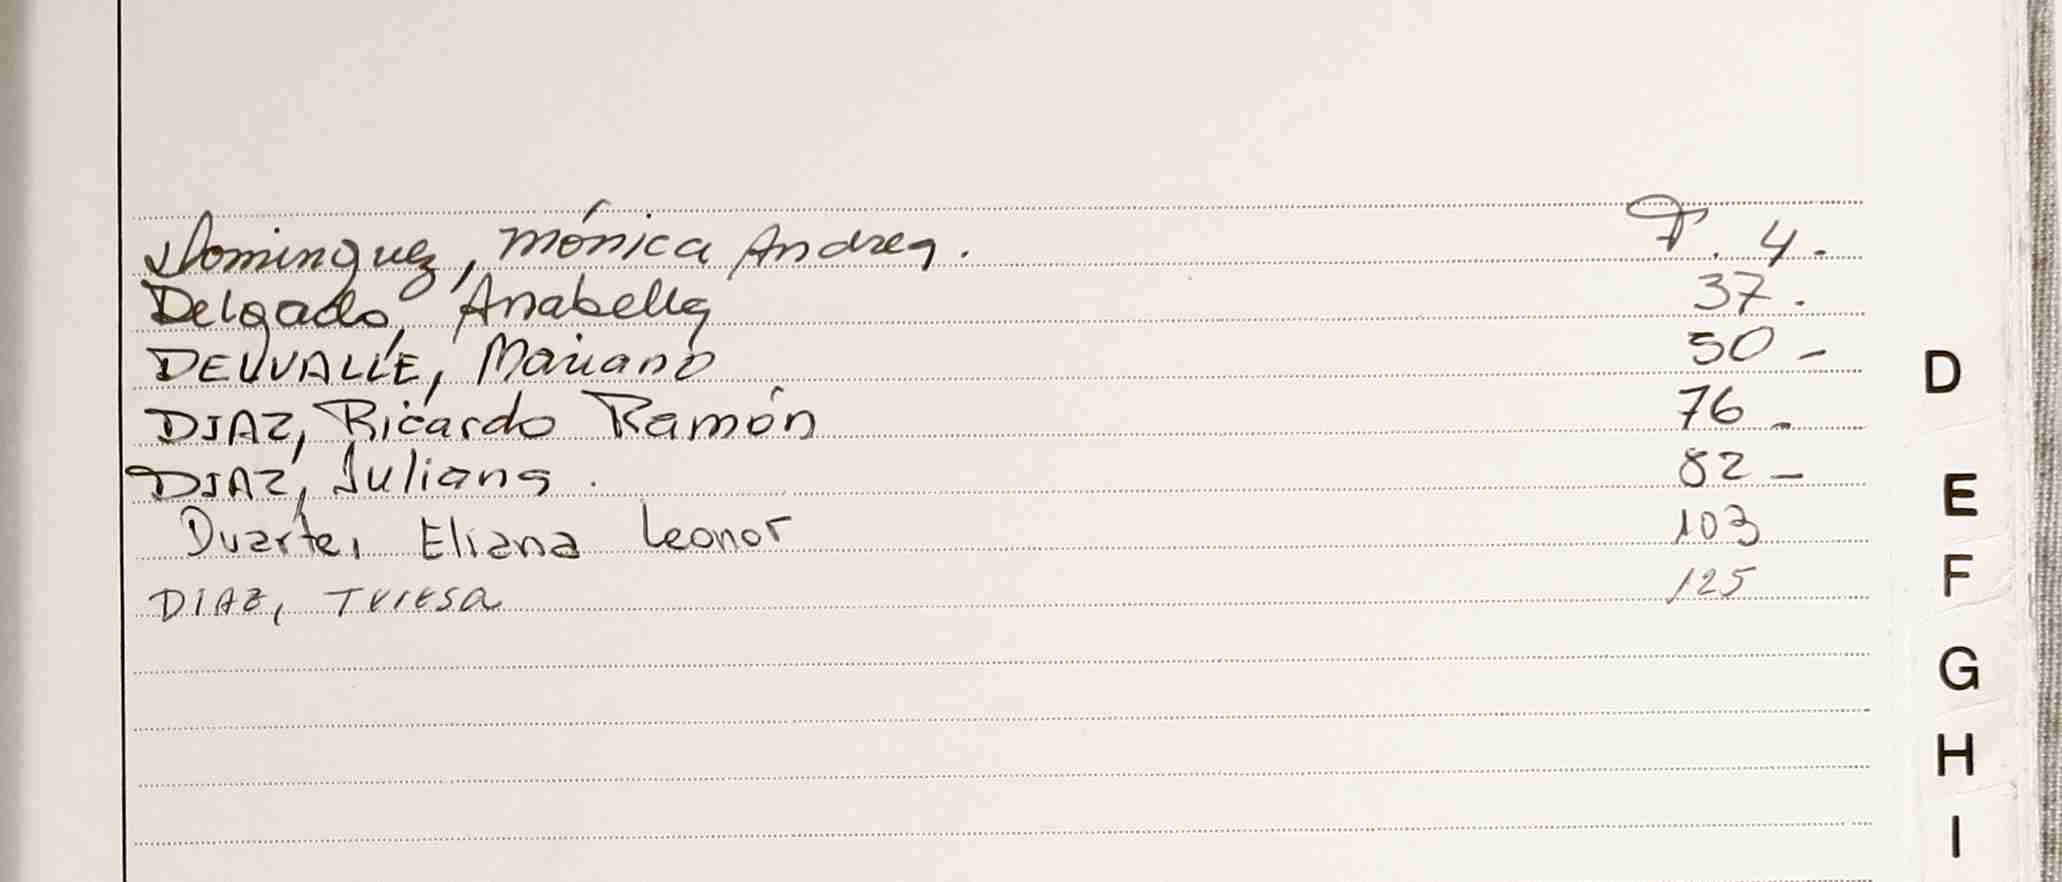 Dominguez, Mónica Andrea. F. 4.
Delgado, Anabella 37.
DELVALLE, Mariano 50 -
DIAZ, Ricardo Ramón 76 -
DIAZ, Juliana . 82 -
Duarte, Eliana Leonor 103
DIAZ, TERESA 125
D
E
F
G
H
I